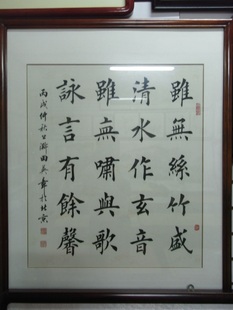 雖無絲竹盛
清水作玄音
雖無嘯與歌
詠言有餘馨
丙戌仲秋田英章於北京